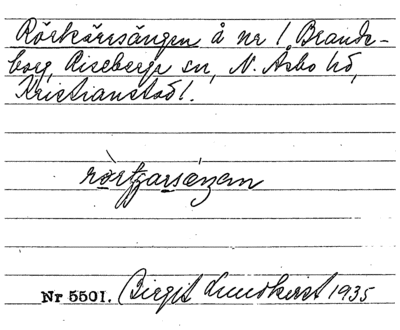 Rörkärrsängen å nr 1 Brands-
borg, Riseberga sn, N. Åsbo hd,
Kristianstad l.
Nr 5501. Birgit Lundkvist 1935